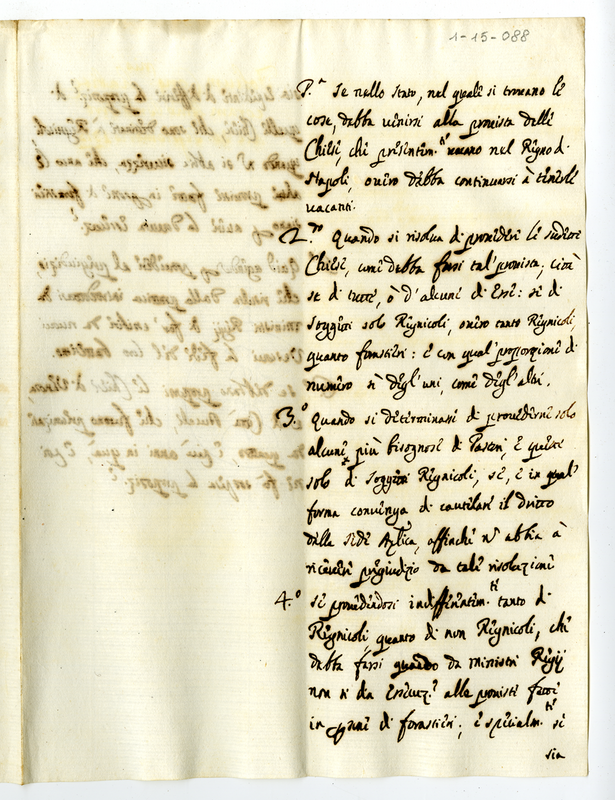 1-15-088
P.ª Se nello stato, nel quale si trovano le
cose, debba venirsi alla provista delle
Chiese, che presentem.te vacano nel Regno di
Napoli, overo debba continuarsi à tenerle
vacanti.
2.do Quando si risolva di provedere le sudette
Chiese, come debba farsi tal provista, cioè
se di tutte, ò d'alcune di Esse: se di
soggetti solo Regnicoli, overo tanto Regnicoli,
quanto forastieri: e con qual proporzione di
numero sì degl'uni, come degl'altri.
3.º Quando si determinasse di provederne solo
alcune più bisognose di Pastori, e queste
solo di soggetti Regnicoli, se, e in qual
forma convenga di cautelare il dritto
della Sede Aplica, affinche nō abbia à
ricevere pregiudizio da tale risoluzione
4.º Se provedendosi indifferentem.te tanto di
Regnicoli quanto di non Regnicoli, che
debba farsi quando da ministri Regij
non si dia Esecuz.e alle proviste fatte
in persone di forastieri; e specialm.te se
sia